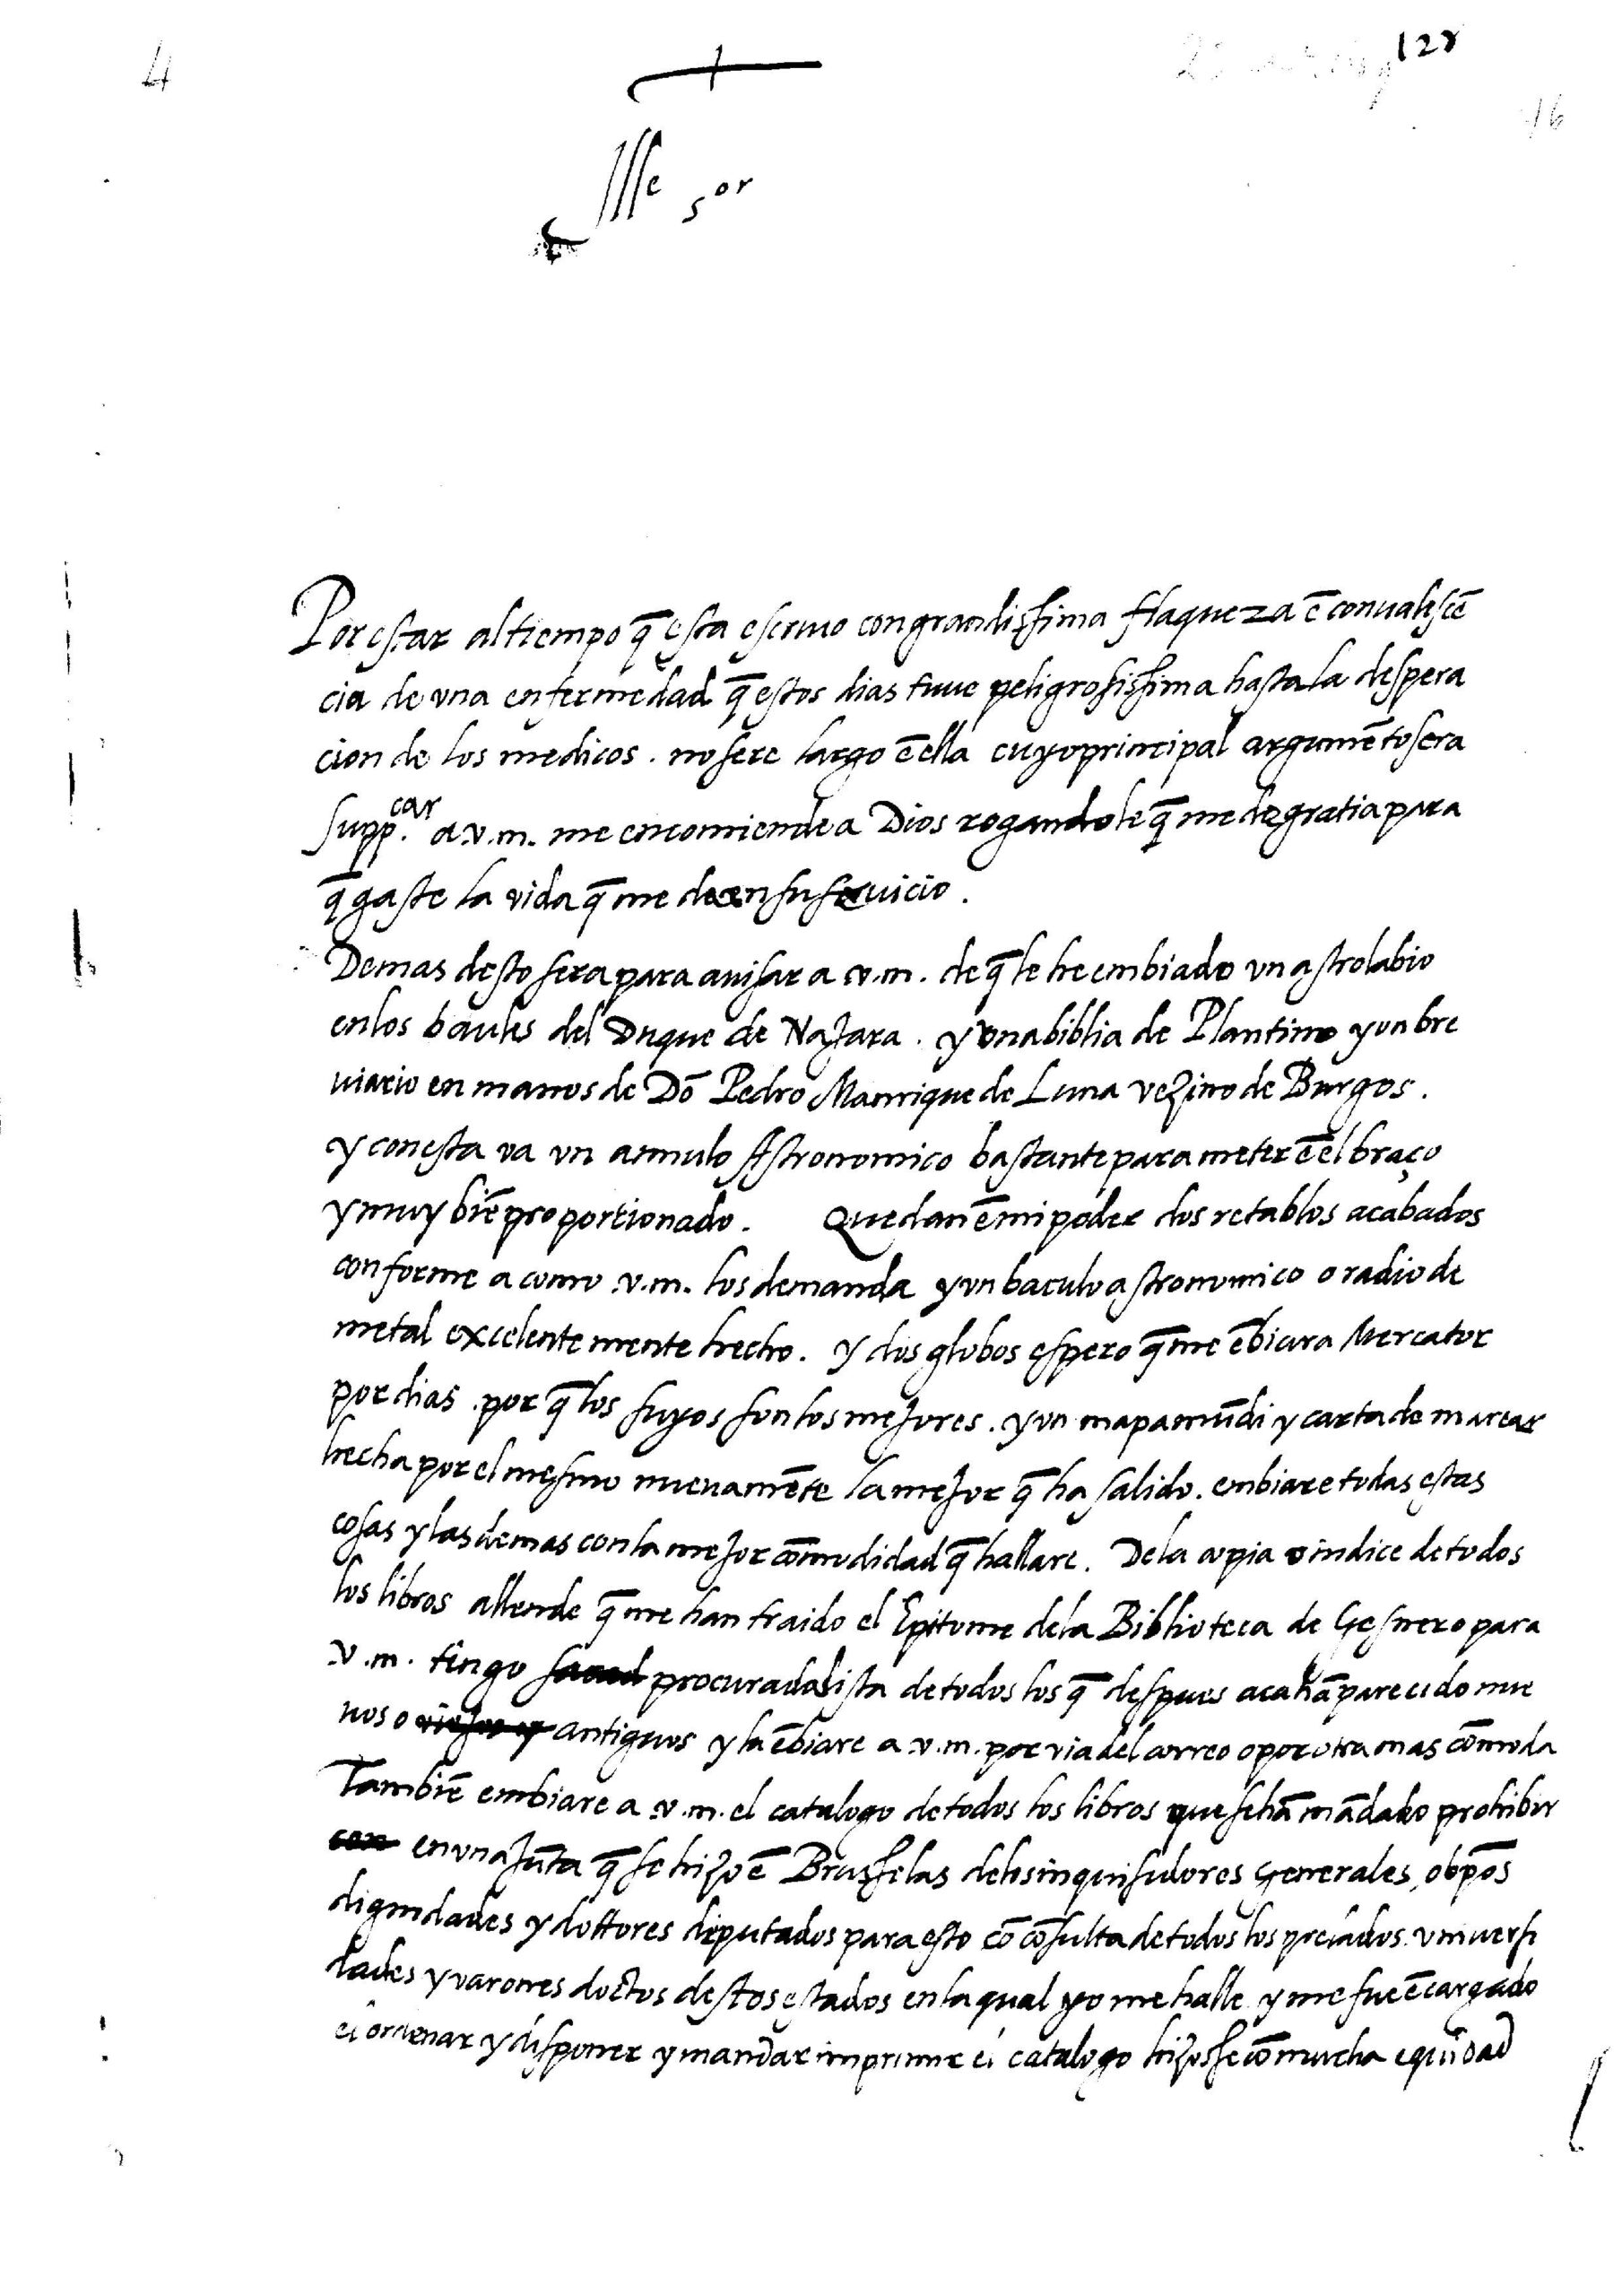 4
128
16
Ille sor
Por estar al tiempo q̄ esta escriuo con grandissima flaqueza ē conualescē
cia de vna enfermedad q̄ estos dias tuue peligrosissima hasta la despera
cion de los medicos. no sere largo ē ella cuyo principal argumēto sera
supp.car a.v.m. me encomiende a Dios rogandole q̄ me de gratia para
q̄ gaste la vida q̄ me dee en su seruicio.
Demas desto sera para auisar a v.m. de q̄ le he embiado vn astrolabio
en los baules del Duque de Najara. y vna biblia de Plantino y vn bre
uiario en manos de Dō Pedro Manrique de Luna vezino de Burgos.
y con esta va vn annulo Astronomico bastante para meter ē el braço
y muy biē proportionado. Quedan ē mi poder dos retablos acabados
conforme a como v.m. los demanda y vn baculo astronomico o radio de
metal excelentemente hecho. y dos globos espero q̄ me ēbiara Mercator
por dias. por q̄ los suyos son los mejores. y vn mapamūdi y carta de marear
hecha por el mesmo nueuamēte la mejor q̄ ha salido. embiare todas estas
cosas y las demas con la mejor cōmodidad q̄ hallare. De la copia o indice de todos
los libros allende q̄ me han traido el Epitome de la Biblioteca de Gesnero para
v.m. tengo procurada lista de todos los q̄ despues aca hā parecido nue
uos o viejos y antiguos y la ēbiare a v.m. por via del correo o por otra mas cōmoda
Tambiē embiare a v.m. el catalogo de todos los libros que se hā mādado prohibir
con en vna jūta q̄ se hizo ē Brusselas de los inquisidores Generales, obpos
dignidades y dottores diputados para esto cō cōsulta de todos los prelados. vniuersi
dades y varones doctos destos estados en la qual yo me halle y me fue ēcargado
el ordenar y disponer y mandar imprimir el catalogo hizosse cō mucha equidad